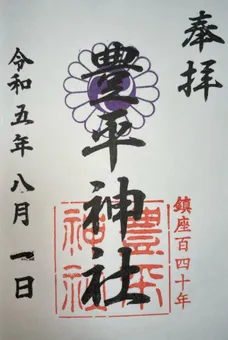 奉拝
豊平神社
鎮座百四十年
豊平
神社
令和五年八月一日